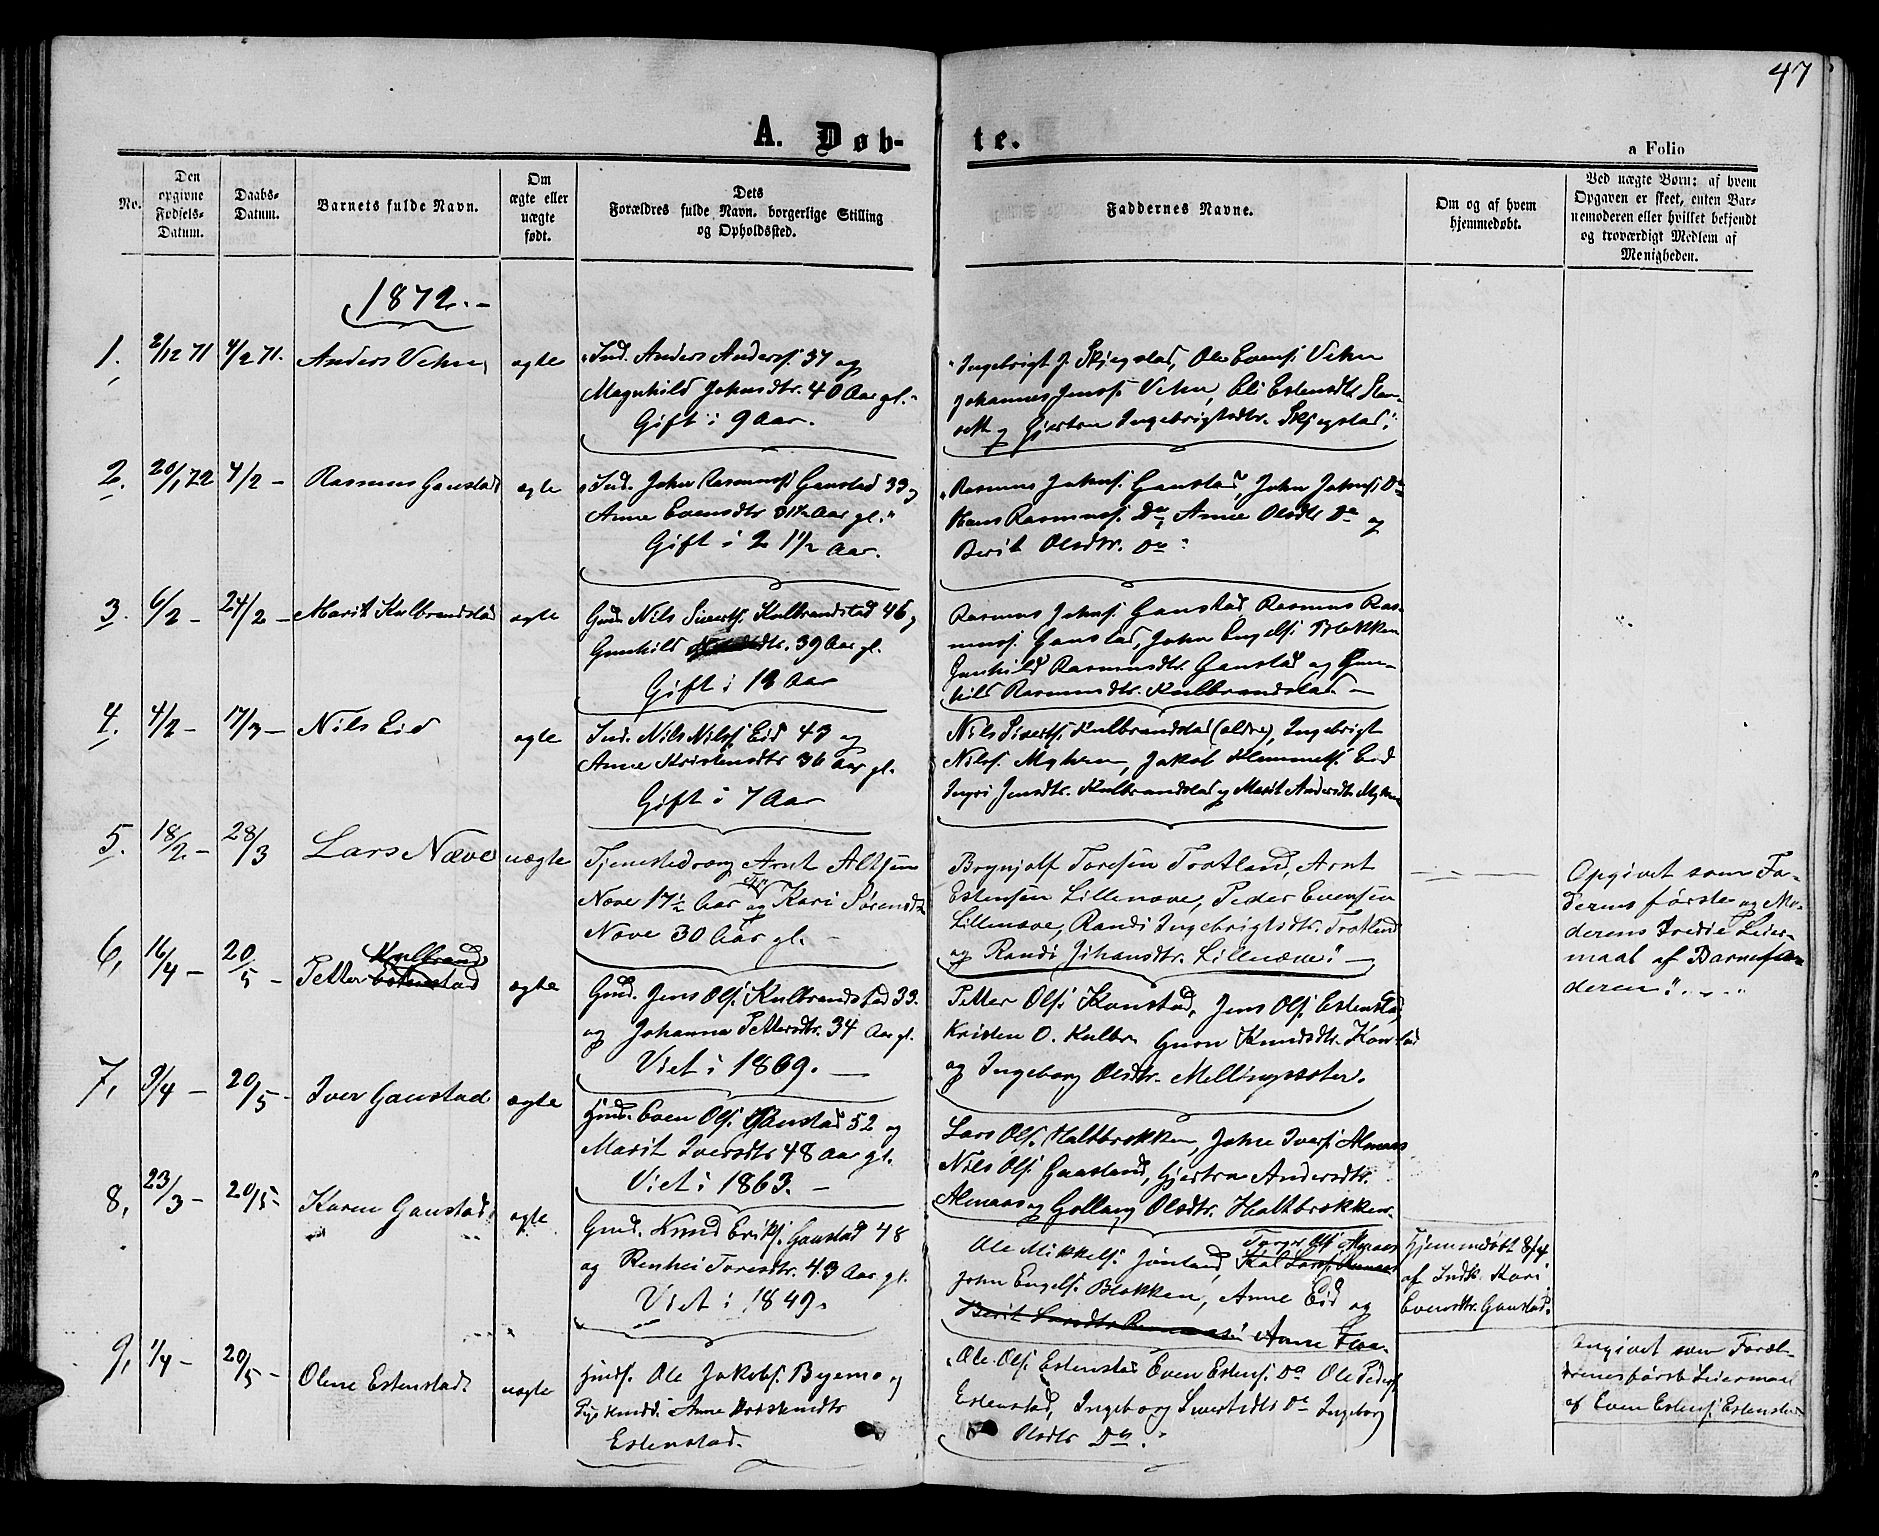 47
A. Døb-
te.
a Folio
No.
Den
opgivne
Fødsels-
Datum.
Daabs-
Datum.
Barnets fulde Navn.
Om
ægte eller
uægte
født.
Dets
Forældres fulde Navn, borgerlige Stilling
og Opholdssted.
Faddernes Navne.
Om og af hvem
hjemmedøbt.
Ved uægte Børn: af hvem
Opgaven er skeet, enten Bar-
nemoderen eller hvilket bekjendt
og troværdigt Medlem af
Menigheden.
1872.-
1. 2/12 71 4/2 71. Anders Vehn ægte
Ind. Anders Anders. 37 og
Magnhild Johnsdtr. 40 Aar gl.
Gift i 9 Aar.
Ingebrigt J. Skjegstad, Ole Evens. Vehn
Johannes Jenss. Vehn, Eli Estensdtr.
og Gjertru Ingebrigtsdtr. Skjegstad.
2. 20/1 72 4/2 - Rasmus Ganstad ægte
Ind. John Rasmuss. Ganstad 33 og
Anne Evensdtr 31½ Aar gl.
Gift i 2 1/2 Aar.
Rasmus Johns. Ganstad, John Johns. Do
Hans Rasmuss. Do, Anne Olsdtr Do og
Berit Olsdtr. Do
3. 6/2 - 24/2 - Marit Kulbrandstad ægte
Gmd. Nils Siverts. Kulbrandstad 46 og
Gunhild dtr. 39 Aar gl.
Gift i 18 Aar
Rasmus Johns. Ganstad Rasmus Ras-
muss. Ganstad, John Engels. Blokken
Gunhild Rasmusdtr. Ganstad og Gun-
hild Rasmusdtr. Kulbrandstad -
4. 4/2 - 17/3 - Nils Eid ægte
Ind. Nils Nilss. Eid 43 og
Anne Kristensdtr 36 Aar gl.
Gift i 7 Aar
Nils Siverts. Kulbrandstad (ældre), Ingebrigt
Nilss. Myhren, Jakob Klemmets. Eid
Ingri Jensdtr. Kulbrandstad og Marit Andersdtr. Myhren
5. 18/2 - 28/3 Lars Næve uægte
Tjenestedreng Arnt Altsen
Næve 17½ Aar og Kari Sørensdtr
Næve 30 Aar gl. -
Brynjolf Toresen Trotland, Arnt
Estensen Lillenæve, Peder Evensen
Lillenæve, Randi Ingebrigtsdtr. Trotland
og Randi Johansdtr. Lillenæve. -
Opgivet som Fa-
derens første og Mo-
derens tredie Leier-
maal af Barnefa-
deren.
6, 16/4 - 20/5 - Petter Kulbrandstad ægte
Gmd. Jens Ols. Kulbrandstad 33
og Johanna Pettersdtr. 34 Aar gl.
Viet i 1869. -
Petter Ols. Konstad, Jens Ols. Estenstad
Kristen O. Kulbr. Guru Knudsdtr. Konstad
og Ingeborg Olsdtr. Mellingsæter.
7, 9/4 - 20/5 - Iver Ganstad ægte
Gmd. Even Ols. Ganstad 52 og
Marit Iversdtr 48 Aar gl.
Viet i 1863. -
Lars Ols. Haltbrækken, John Ivers. Almaas
Nils Ols. Ganstad, Gjertru Andersdtr.
Almaas og Gollaug Olsdtr. Haltbrækken.
8, 23/3 - 20/5 - Karen Ganstad ægte
Gmd. Knud Eriks. Ganstad 48
og Renhei Toresdtr. 43 Aar gl.
Viet i 1849.
Ole Mikkels. Jønland,
John Engels. Blokken, Anne Eid og
Berit Larsdtr Anne
Hjemmedøbt 8/4
af Indk. Kari
Evensdtr. Ganstad.
9, 1/4 - 20/5 - Olene Estenstad uægte
Gmds. Ole Jakobs. Byemo og
Anne
Estenstad.
Ole Ols. Estenstad Even Estens. Do Ole Peders.
Estenstad, Ingeborg Sivertsdtr Do Ingeborg
Olsdtr Do.
Angivet som Foræl-
drenes første Leiermaal
af Even Estens. Estenstad